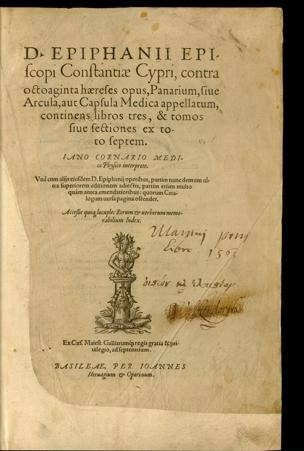 D. EPIPHANII EPI-
ſcopi Conſtantiæ Cypri, contra
octoaginta hæreſes opus, Panarium, ſiue
Arcula, aut Capſula Medica appellatum,
continens libros tres, & tomos
ſiue ſectiones ex to-
to ſeptem.
IANO CORNARIO MEDI-
co Phyſico interprete.
Vnà cum alijs eiuſdem D. Epiphanij operibus, partim nunc demum ul-
tra ſuperiorem editionem adiectis, partim etiam multo
quàm antea emendatioribus: quorum Cata-
logum uerſa pagina oſtendet.
Acceſsit quoq; locuples Rerum & uerborum memo-
rabilium Index.
Ex Caſ. Maieſt. Galliarumq; regis gratia & pri-
uilegio, ad ſeptennium.
BASILEAE, PER IOANNES
Heruagium & Oporinum.